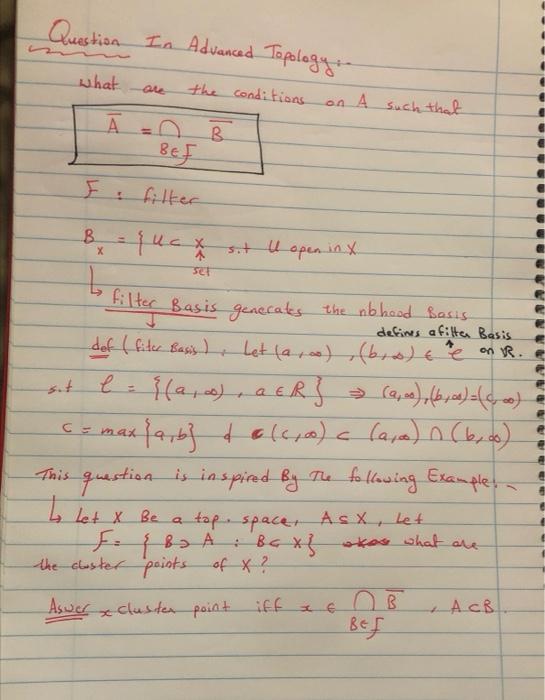 Question In Advanced Topology:-
what are the conditions on A such that
A̅ = ∩ B̅
B∈F
F : filter
B_x = { U ⊂ X s.t U open in X
set
↳ filter Basis generates the nbhood Basis
defines a filter Basis
def (filter Basis) : Let (a, ∞) , (b, ∞) ∈ ℓ on ℝ.
s.t ℓ = {(a, ∞) , a ∈ R} ⇒ (a, ∞), (b, ∞) = (c, ∞)
c = max {a, b} & (c, ∞) ⊂ (a, ∞) ∩ (b, ∞)
This question is inspired By The following Example:-
↳ Let X Be a top. space, A ⊆ X, Let
F = { B ⊃ A : B ⊂ X} what are
the cluster points of X?
Aswer x cluster point iff x ∈ ∩ B̅ , A ⊂ B.
B∈F